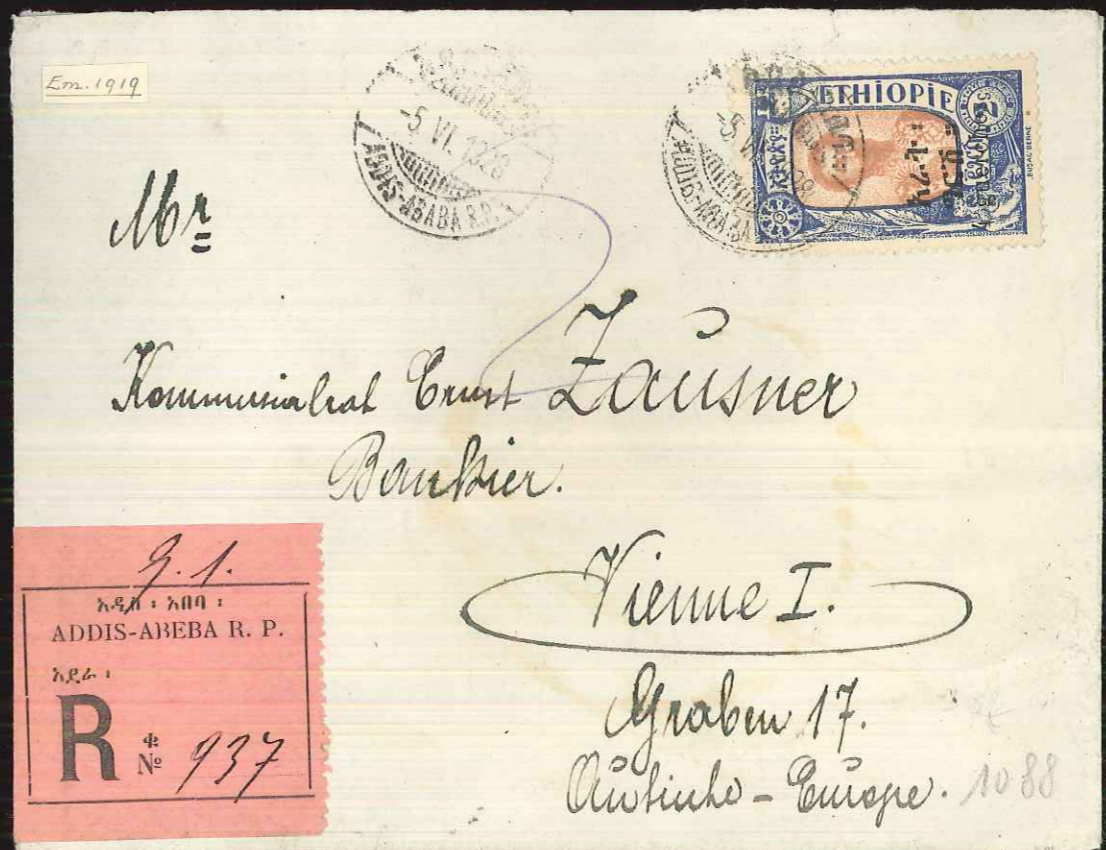 Em. 1919
-5 VI. 1928
ADDIS-ABABA R.P.
-5 VI 1928
ADDIS-ABABA
ETHIOPIE
2
Mr
Kommerzialrat Ernst Zausner
Bankier.
Vienne I.
Graben 17.
Autriche - Europe.
1088
9.1.
አዲስ ፡ አበባ ፡
ADDIS-ABEBA R. P.
አደራ ፡
R ቍ No 937